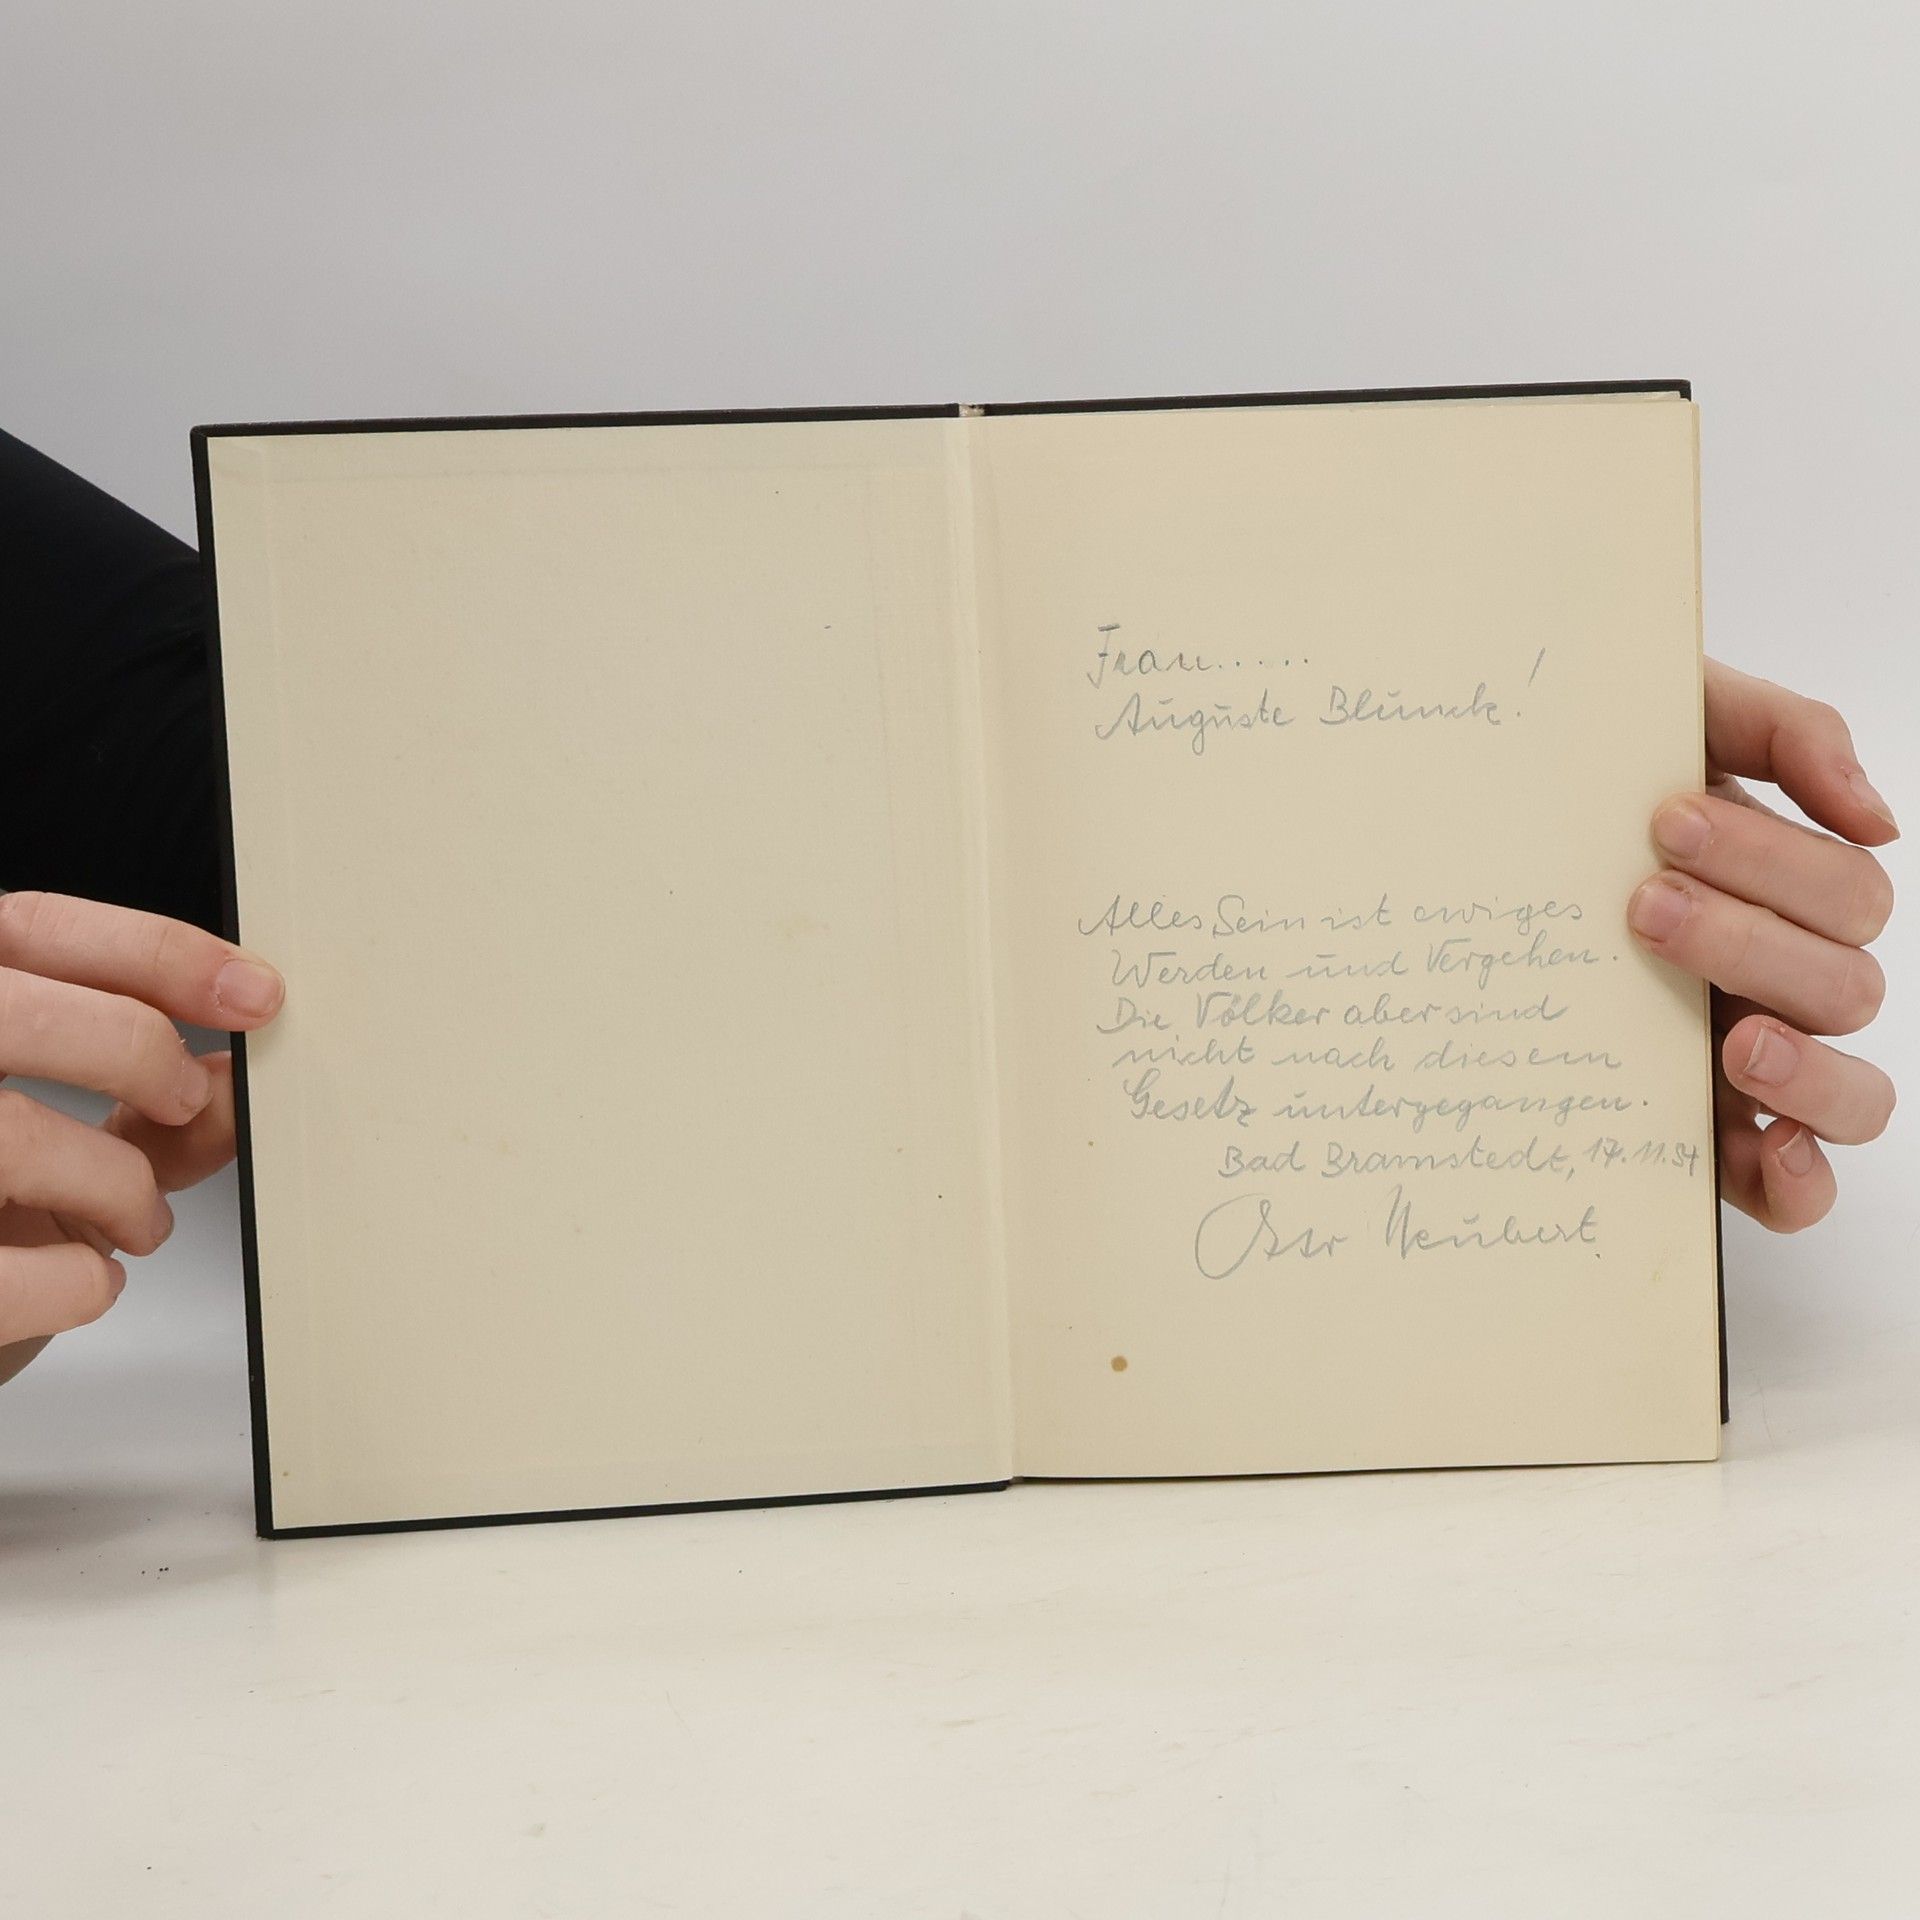 Frau.....
Auguste Blunck!
Alles Sein ist ewiges
Werden und Vergehen.
Die Völker aber sind
nicht nach diesem
Gesetz untergegangen.
Bad Bramstedt, 17.11.34
Neubert.